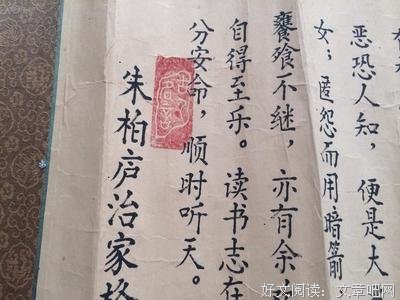 恶恐人知，便是大
女；匿怨而用暗箭
饔飧不继，亦有余
自得至乐。读书志在
分安命，顺时听天。
朱柏庐治家格
好文阅读：文章吧网